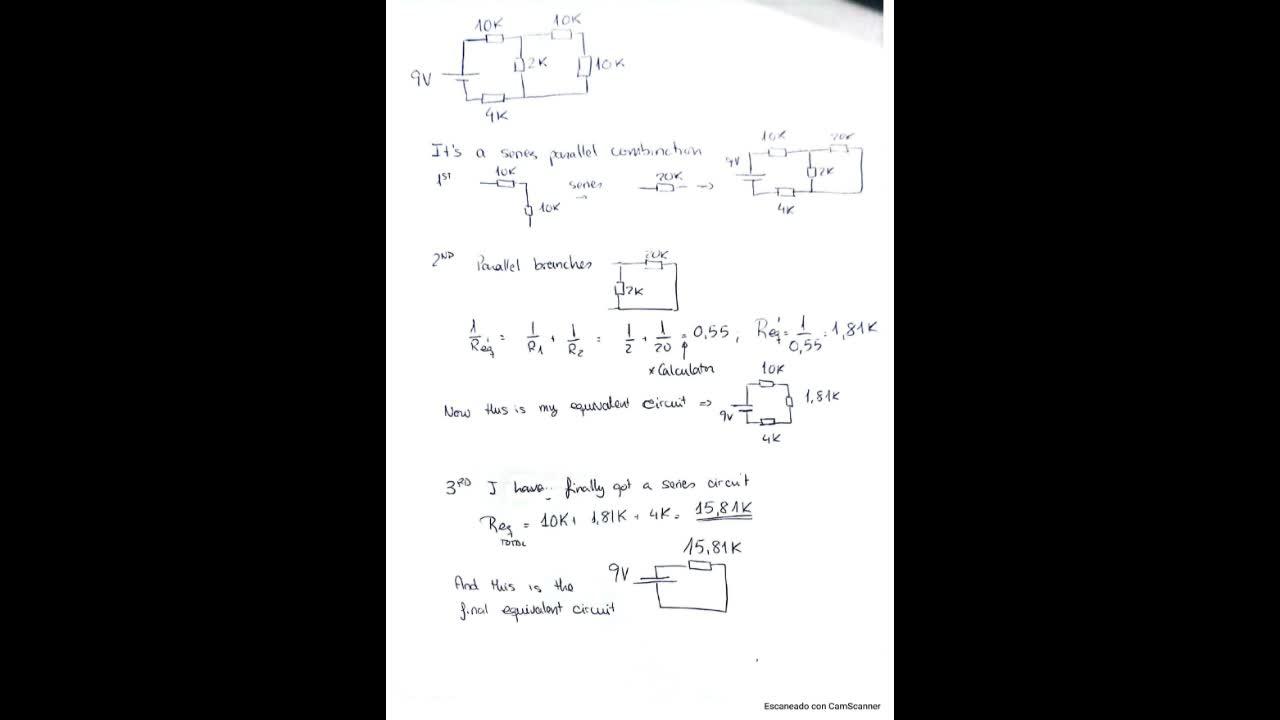 10K 10K
9V 2K 10K
4K
It's a series parallel combination
1ST 10K series 20K →
10K
10K 20K
9V 2K
4K
2ND Parallel branches
20K
2K
1/Req' = 1/R1 + 1/R2 = 1/2 + 1/20 = 0,55 ; Req' = 1/0,55 = 1,81K
* Calculator
Now this is my equivalent circuit =>
10K
9V 1,81K
4K
3RD I have finally got a series circuit
Req TOTAL = 10K + 1,81K + 4K = 15,81K
15,81K
9V
And this is the
final equivalent circuit
Escaneado con CamScanner